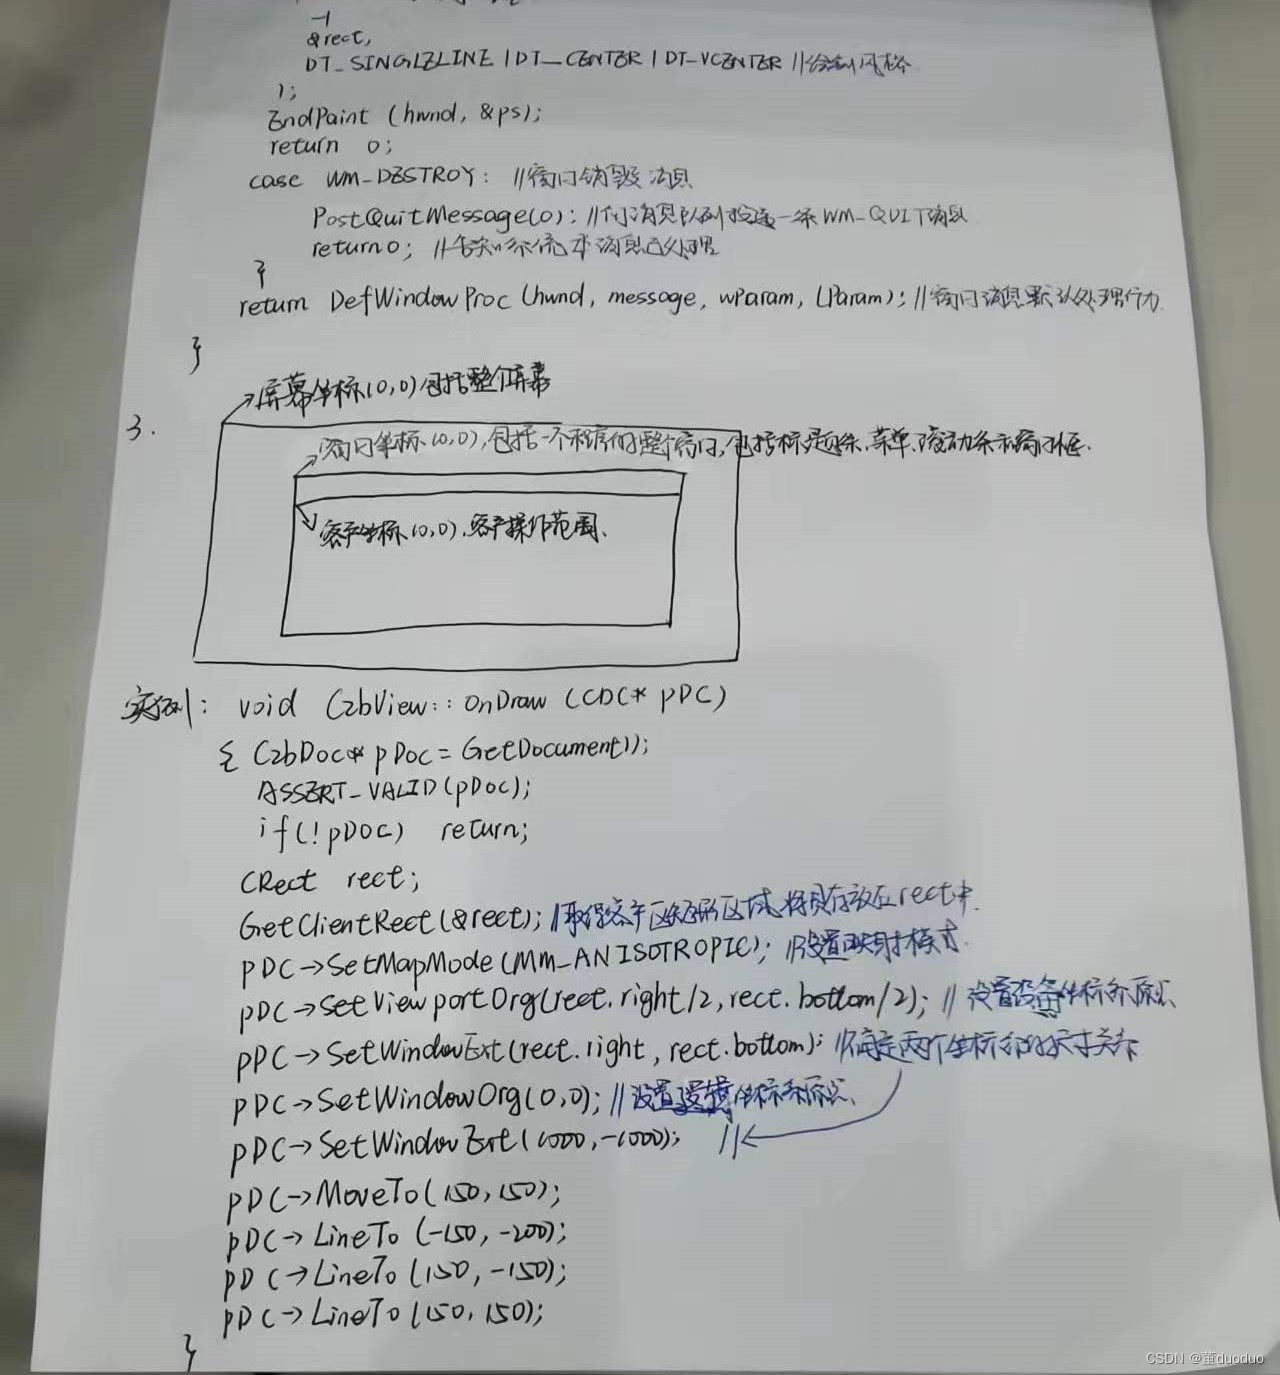 -1
&rect,
DT_SINGLELINE | DT_CENTER | DT_VCENTER //绘制风格
);
EndPaint (hwnd, &ps);
return 0;
case WM_DESTROY: //窗口销毁消息
PostQuitMessage(0); //向消息队列投送一条WM_QUIT消息
return 0; //告知系统本消息已处理
}
return DefWindowProc (hwnd, message, wParam, LParam); //窗口消息默认处理行为
}
屏幕坐标(0,0)包括整个屏幕
3.
窗口坐标(0,0),包括一个程序的整个窗口,包括标题条,菜单,滚动条和窗口框.
客户坐标(0,0).客户操作范围.
实例: void CzbView::OnDraw (CDC* pDC)
{ CzbDoc* pDoc = GetDocument();
ASSERT_VALID(pDoc);
if(!pDoc) return;
CRect rect;
GetClientRect(&rect); //取得客户区矩形区域,将其存放在rect中.
pDC->SetMapMode(MM_ANISOTROPIC); //设置映射模式.
pDC->SetViewportOrg(rect.right/2,rect.bottom/2); //设置设备坐标系原点
pDC->SetWindowExt(rect.right,rect.bottom); //确定两个坐标系的尺寸关系
pDC->SetWindowOrg(0,0); //设置逻辑坐标系原点
pDC->SetWindowExt(1000,-1000); //
pDC->MoveTo(150,150);
pDC->LineTo (-150,-200);
pDC->LineTo (150,-150);
pDC->LineTo (150,150);
}
CSDN @董duoduo